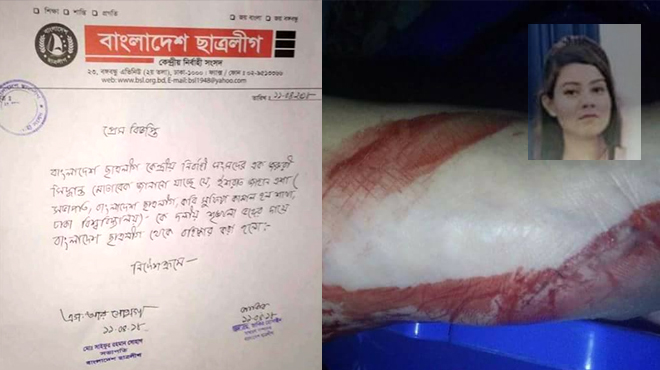 □ শিক্ষা □ শান্তি □ প্রগতি
□ জয় বাংলা □ জয় বঙ্গবন্ধু
বাংলাদেশ ছাত্রলীগ
কেন্দ্রীয় নির্বাহী সংসদ
২৩, বঙ্গবন্ধু এভিনিউ (২য় তলা), ঢাকা-১০০০। ফ্যাক্স / ফোন : ০২-৯৫১৩৩৬৬
web: www.bsl.org.bd, E-mail: bsl1948@yahoo.com
তারিখ :
প্রেস বিজ্ঞপ্তি
বাংলাদেশ ছাত্রলীগ কেন্দ্রীয় নির্বাহী সংসদের এক জরুরী
সিদ্ধান্ত মোতাবেক জানানো যাচ্ছে যে, ইশরাত জাহান এশা (
সভাপতি, বাংলাদেশ ছাত্রলীগ, কবি সুফিয়া কামাল হল শাখা,
ঢাকা বিশ্ববিদ্যালয়)-কে দলীয় শৃঙ্খলা ভঙ্গের দায়ে
বাংলাদেশ ছাত্রলীগ থেকে বহিষ্কার করা হলো।-
মোঃ সাইফুর রহমান সোহাগ
সভাপতি
বাংলাদেশ ছাত্রলীগ